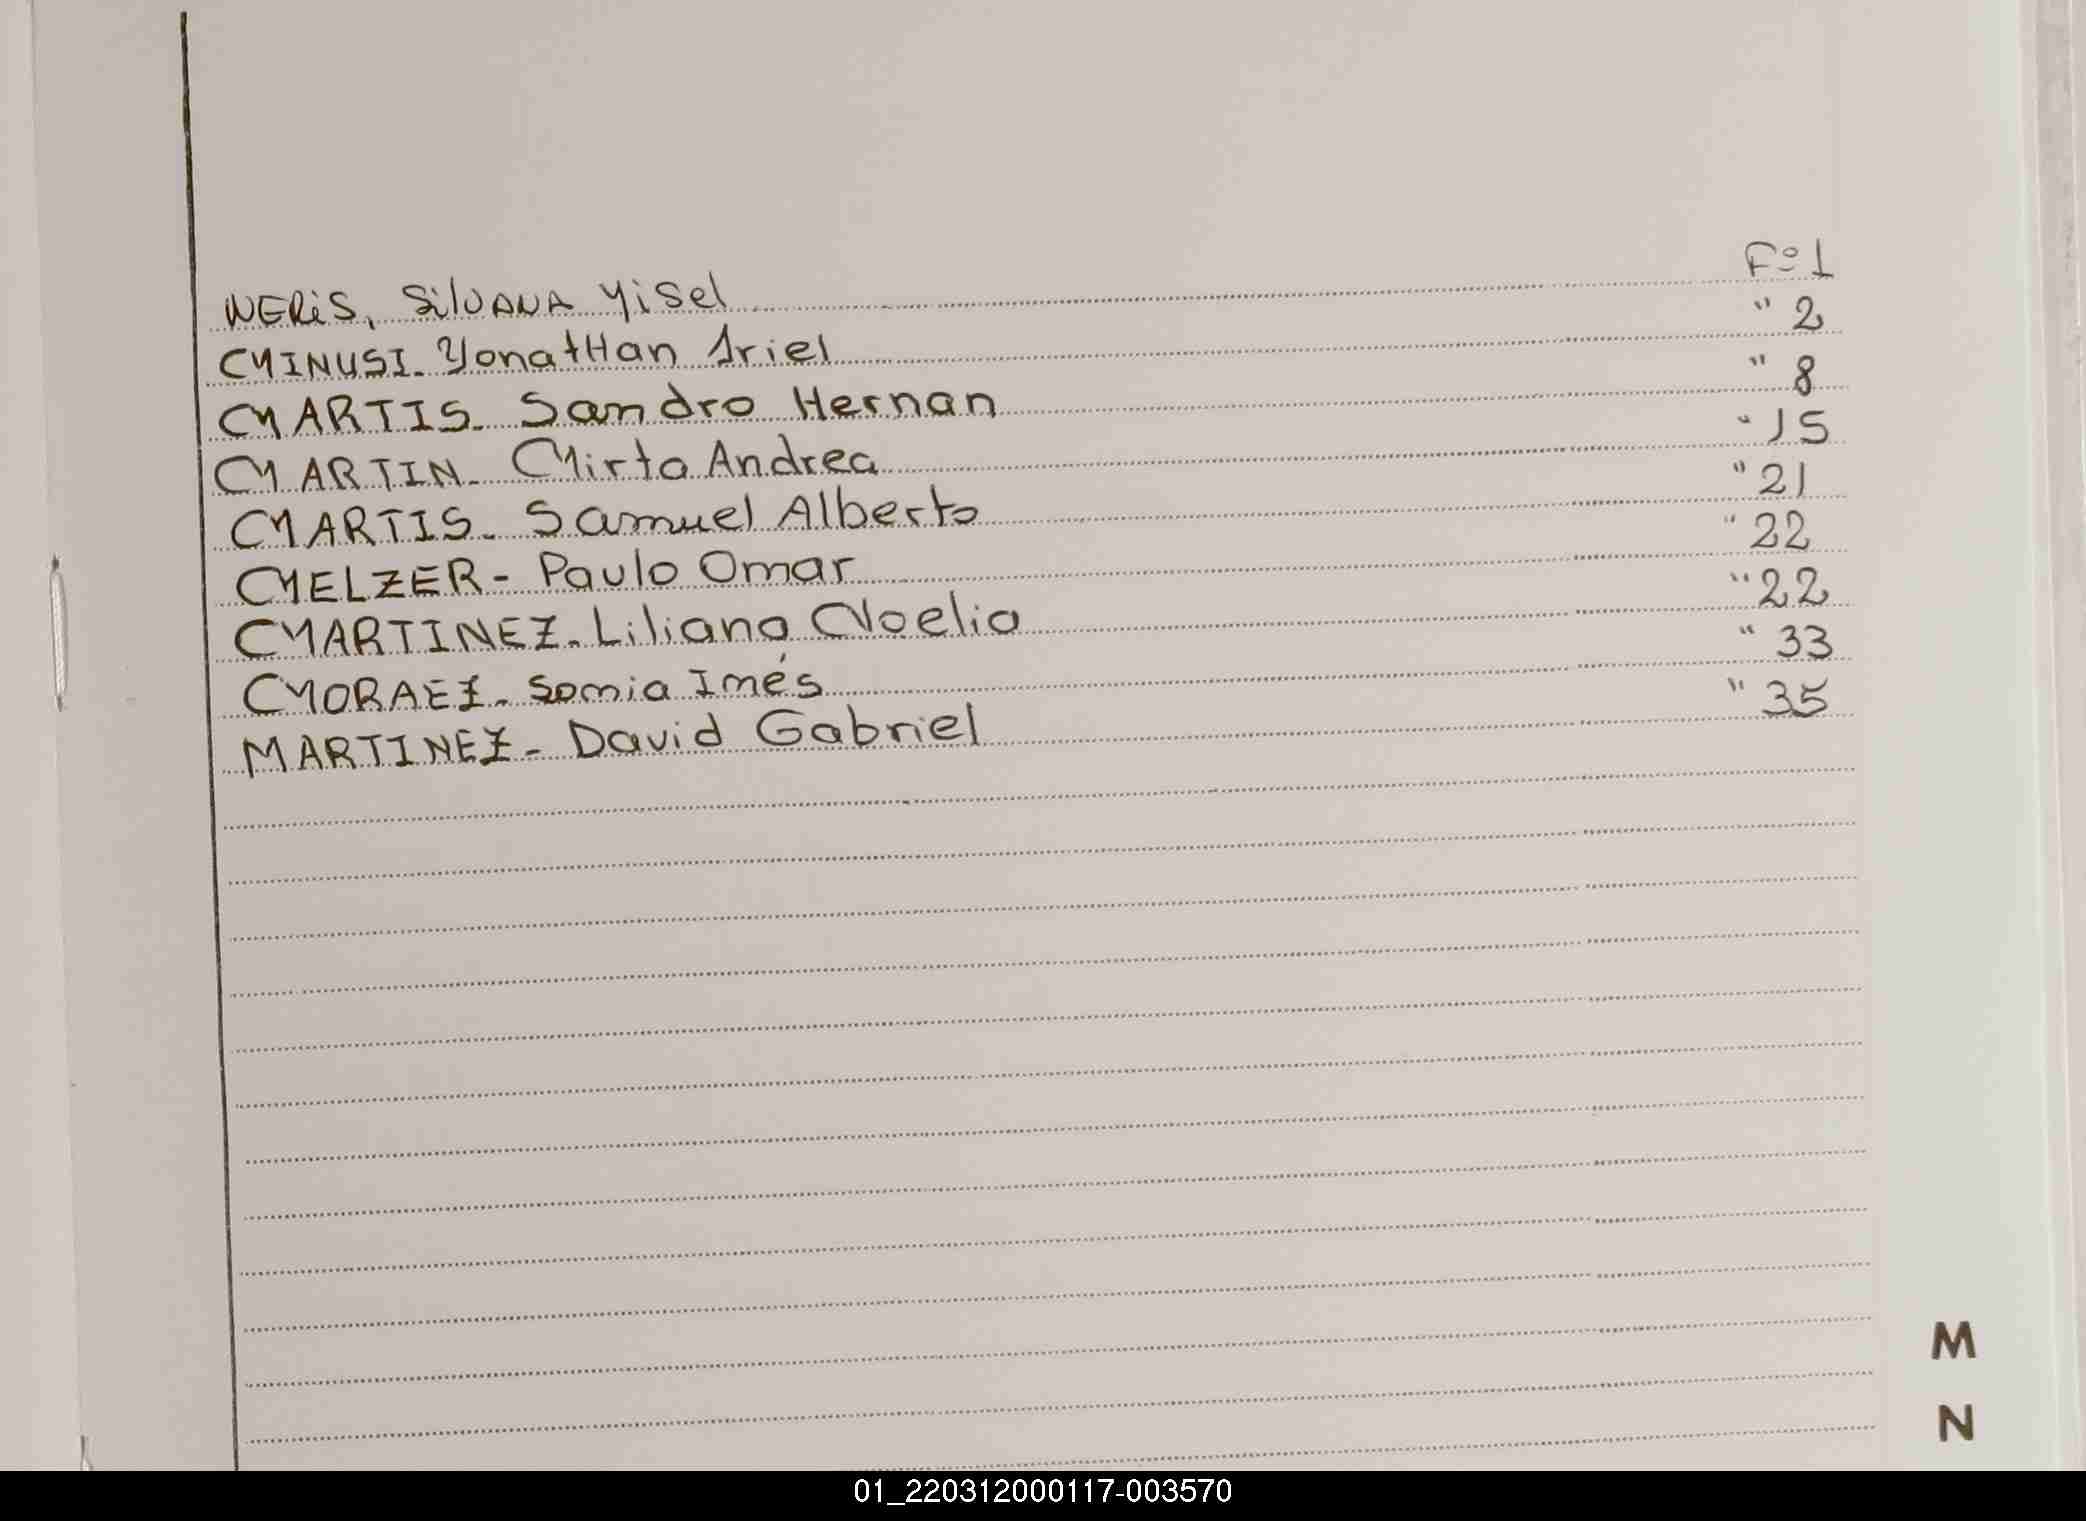 NERiS, SilVANA YiSel F=º1
MINUSI. YonatHan Ariel " 2
MARTIS. Sandro Hernan " 8
MARTIN. Mirta Andrea " 15
MARTIS. Samuel Alberto " 21
MELZER - Paulo Omar " 22
MARTINEZ. Liliana Noelia " 22
MORAEZ. Sonia Inés " 33
MARTINEZ - David Gabriel " 35
M
N
01_220312000117-003570